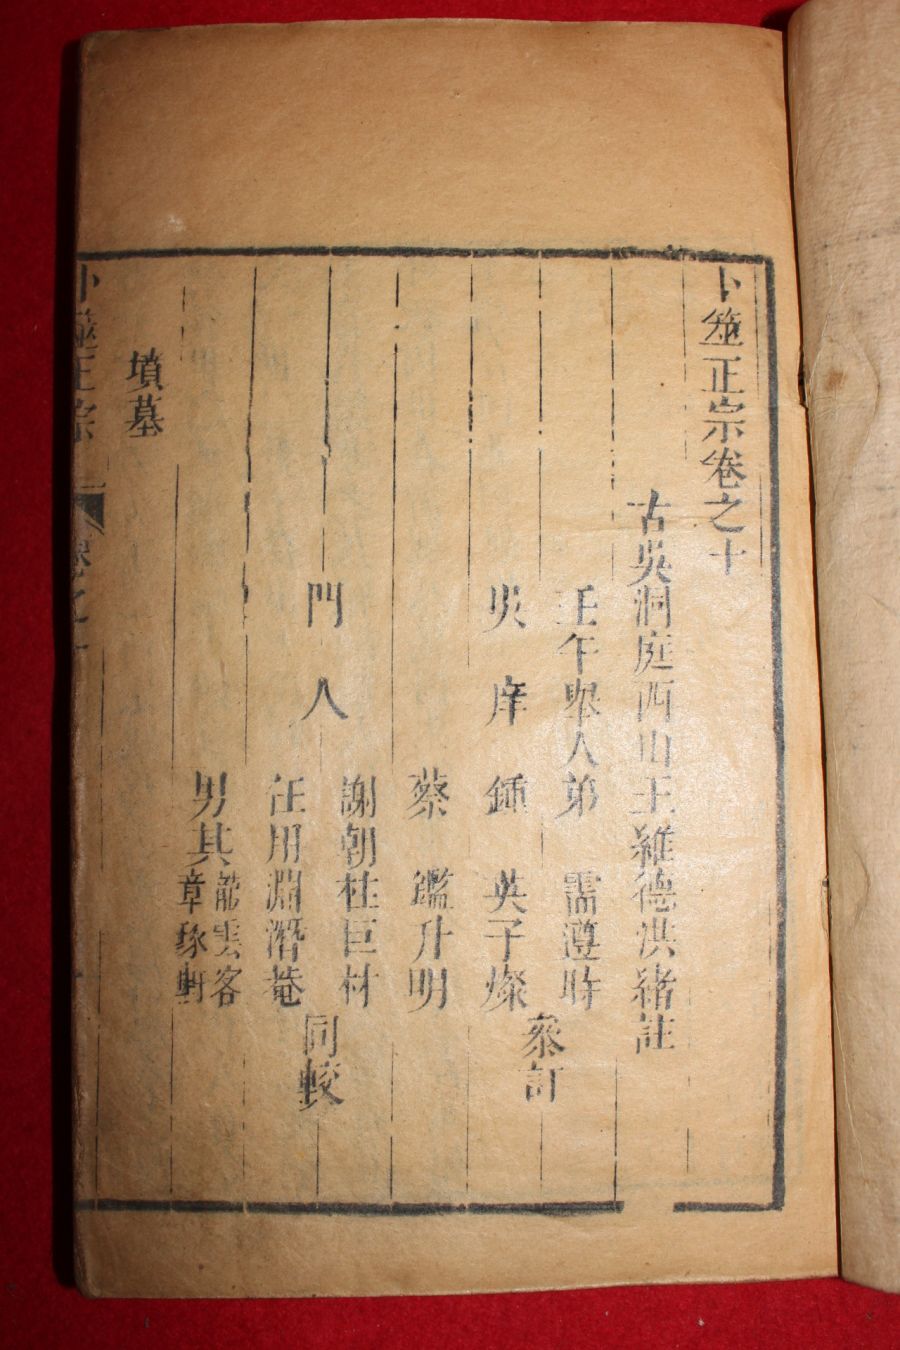 卜筮正宗卷之十
古吳洞庭西山王維德洪緒註
壬午舉人弟 需遵時
吳庠 鍾 英子燦
參訂
蔡 鑑升明
謝朝柱巨材
門人
汪用淵潛菴
同較
男其龍雲客
章琢軒
墳墓
卜筮正宗
卷之十